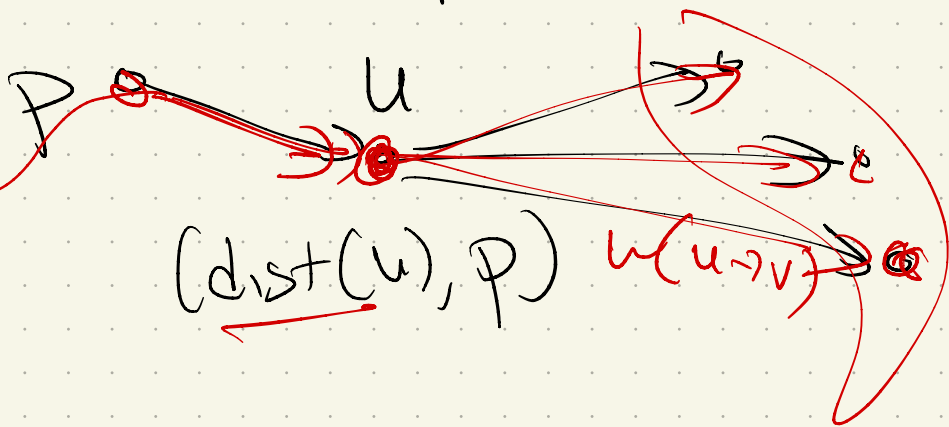 p
u
(dist(u), p)
w(u→v)